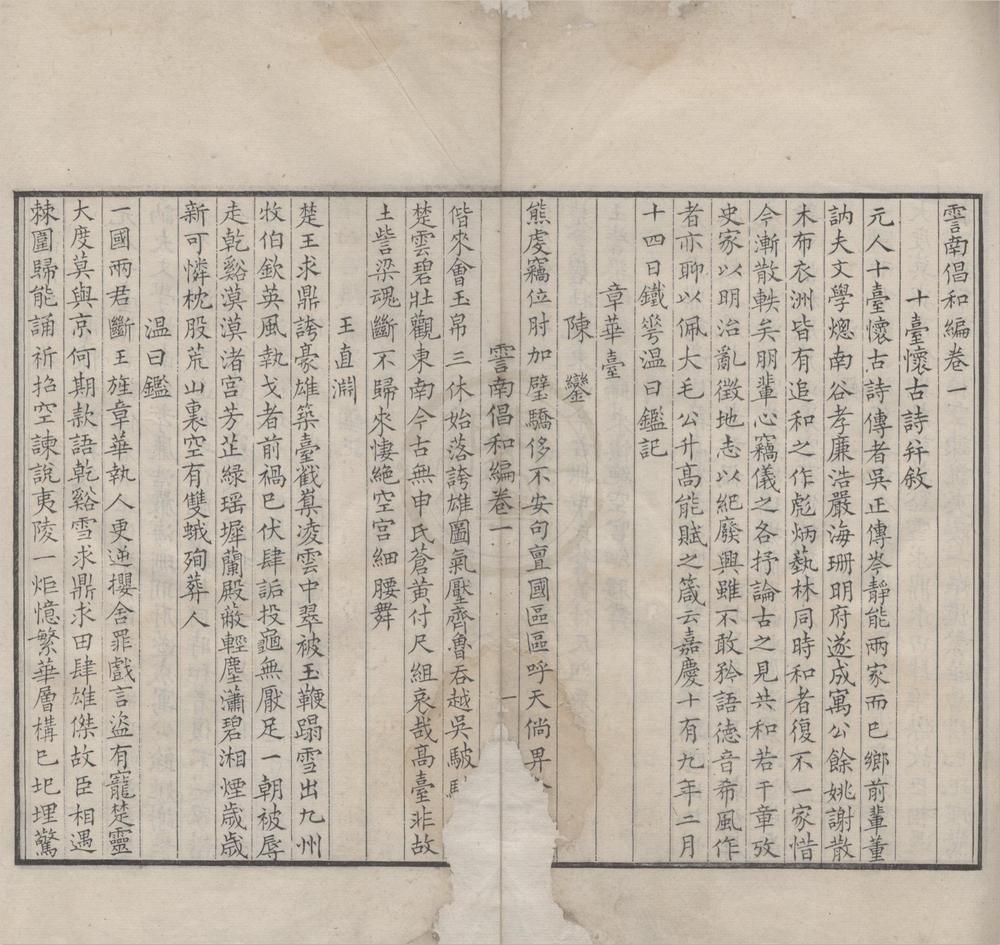 雪南倡和編卷一
十臺懷古詩幷敘
元人十臺懷古詩傳者吳正傳岑靜能兩家而已鄉前輩董
訥夫文學愡南谷孝廉浩嚴海珊明府遂成寓公餘姚謝散
木布衣洲皆有追和之作彪炳藝林同時和者復不一家惜
今漸散軼矣朋輩心竊儀之各抒論古之見共和若干章攷
史家以明治亂徵地志以紀廢興雖不敢矜語德音希風作
者亦聊以佩大毛公升高能賦之箴云嘉慶十有九年二月
十四日鐵華温曰鑑記
章華臺
陳鑾
熊虔竊位肘加璧驕侈不安句亶國區區呼天倘畀
雪南倡和編卷一
一
偕來會玉帛三休始落誇雄圖氣壓齊魯吞越吳駊
楚雲碧壯觀東南今古無申氏蒼黃付尺組哀哉高臺非故
土訾梁魂斷不歸來悽絕空宮細腰舞
王直淵
楚王求鼎誇豪雄築臺戳嶪凌雲中翠被玉鞭蹋雪出九州
牧伯欽英風執戈者前禍已伏肆詬投龜無厭足一朝被辱
走乾谿漠漠渚宮芳芷綠瑶墀蘭殿蔽輕塵瀟碧湘煙歲歲
新可憐枕股荒山裏空有雙蛾殉葬人
温曰鑑
一國兩君斷王旌章華執人更逆攖舍罪戲言盜有寵楚靈
大度莫與京何期款語乾谿雪求鼎求田肆雄傑故臣相遇
棘圍歸能誦祈招空諫說夷陵一炬憶繁華層構已圯埋驚